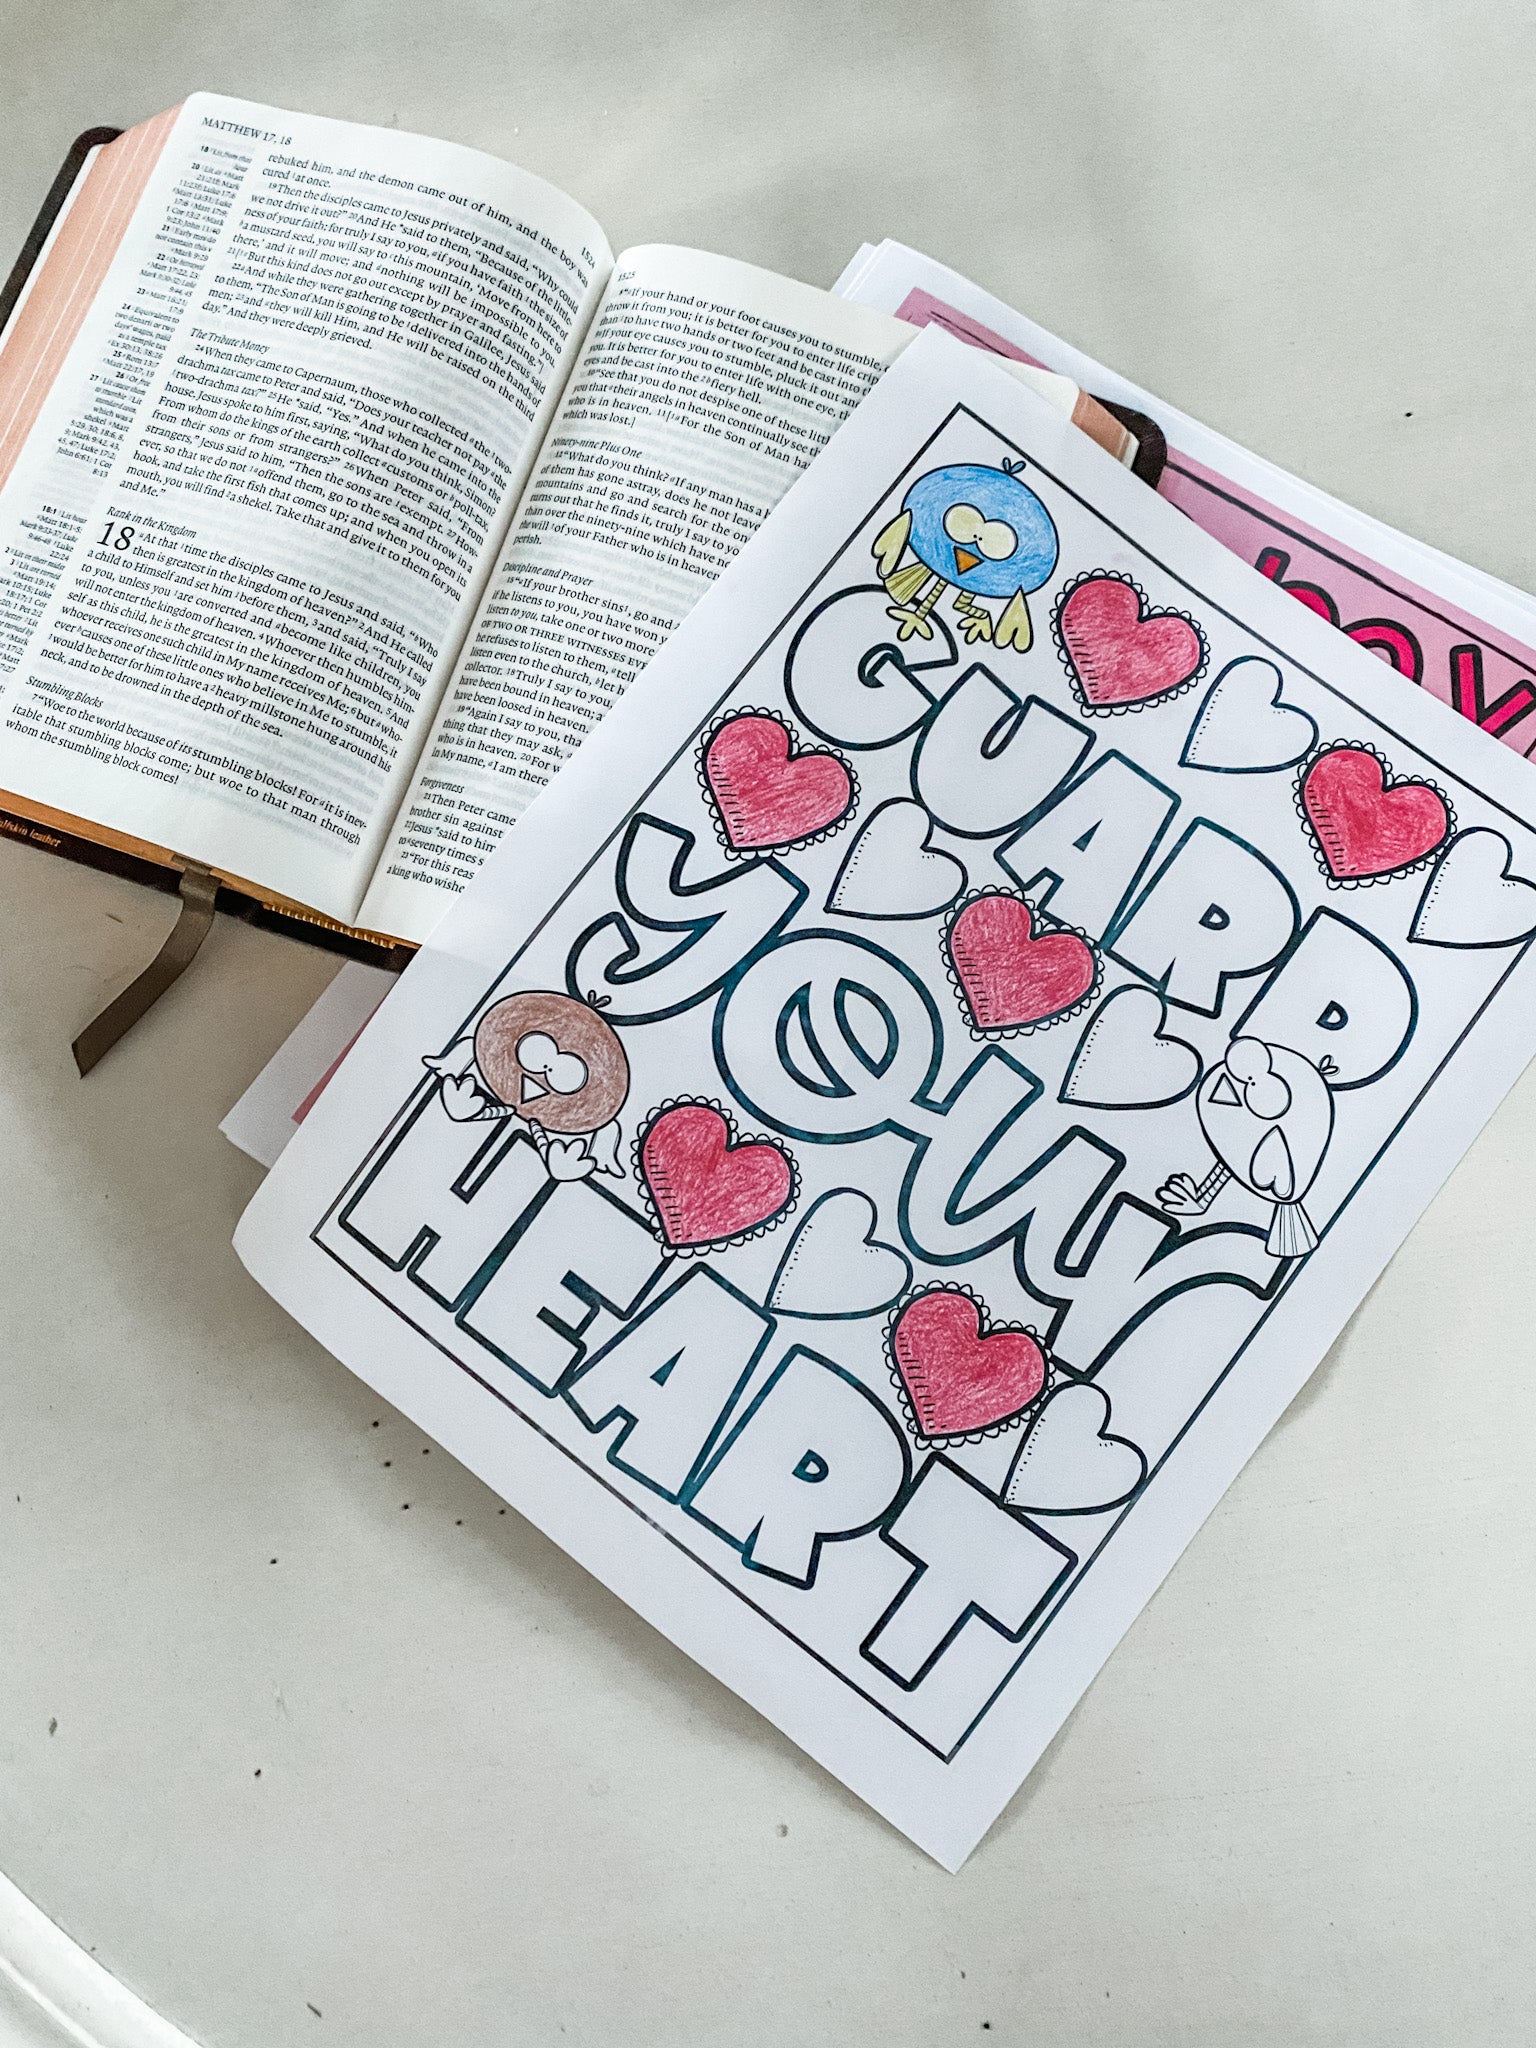 MATTHEW 17, 18
1524
rebuked him, and the demon came out of him, and the boy was
cured at once.
19 Then the disciples came to Jesus privately and said, "Why could
we not drive it out?" 20 And He *said to them, "Because of the little-
ness of your faith; for truly I say to you, if you have faith the size of
a mustard seed, you will say to this mountain, 'Move from here to
there,' and it will move; and nothing will be impossible to you.
21 [But this kind does not go out except by prayer and fasting."]
22 And while they were gathering together in Galilee, Jesus said
to them, "The Son of Man is going to be delivered into the hands of
men; 23 and they will kill Him, and He will be raised on the third
day." And they were deeply grieved.
The Tribute Money
24 When they came to Capernaum, those who collected the two-
drachma tax came to Peter and said, "Does your teacher not pay the
two-drachma tax?" 25 He *said, "Yes." And when he came into the
house, Jesus spoke to him first, saying, "What do you think, Simon?
From whom do the kings of the earth collect customs or poll-tax,
from their sons or from strangers?" 26 When Peter said, "From
strangers," Jesus said to him, "Then the sons are exempt. 27 How-
ever, so that we do not offend them, go to the sea and throw in a
hook, and take the first fish that comes up; and when you open its
mouth, you will find a shekel. Take that and give it to them for you
and Me."
Rank in the Kingdom
18 At that time the disciples came to Jesus and said, "Who
then is greatest in the kingdom of heaven?" 2 And He called
a child to Himself and set him before them, 3 and said, "Truly I say
to you, unless you are converted and become like children, you
will not enter the kingdom of heaven. 4 Whoever then humbles him-
self as this child, he is the greatest in the kingdom of heaven. 5 And
whoever receives one such child in My name receives Me; 6 but who-
ever causes one of these little ones who believe in Me to stumble, it
would be better for him to have a heavy millstone hung around his
neck, and to be drowned in the depth of the sea.
Stumbling Blocks
7 "Woe to the world because of its stumbling blocks! For it is inev-
itable that stumbling blocks come; but woe to that man through
whom the stumbling block comes!
1525
8 "If your hand or your foot causes you to stumble,
throw it from you; it is better for you to enter life crip
than to have two hands or two feet and be cast into
If your eye causes you to stumble, pluck it out and
you. It is better for you to enter life with one eye, th
eyes and be cast into the fiery hell.
10 "See that you do not despise one of these littl
you that their angels in heaven continually see th
who is in heaven. 11 [For the Son of Man ha
which was lost.]
Ninety-nine Plus One
12 "What do you think? If any man has a
of them has gone astray, does he not leave
mountains and go and search for the on
turns out that he finds it, truly I say to yo
than over the ninety-nine which have no
the will of your Father who is in heaven
perish.
Discipline and Prayer
15 "If your brother sins, go and
if he listens to you, you have won y
listen to you, take one or two more
OF TWO OR THREE WITNESSES EV
he refuses to listen to them, tell
listen even to the church, let h
collector. 18 Truly I say to you,
have been bound in heaven; a
have been loosed in heaven.
19 "Again I say to you, tha
thing that they may ask,
who is in heaven. 20 For w
in My name, I am there
Forgiveness
21 Then Peter came
brother sin against
Jesus *said to him
to seventy times s
23 "For this reas
a king who wishe
GUARD
YOUR
HEART